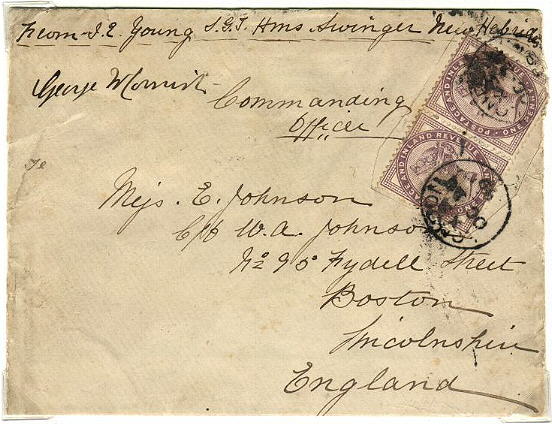 From J.E. Young S.G.T. Hms Swinger New Hebrides
George Morris
Commanding
Officer
Mifs. E. Johnson
C/o W.A. Johnson
No 95 Fydell Street
Boston
Lincolnshire
England
POSTAGE AND INLAND REVENUE
AND INLAND REVENUE